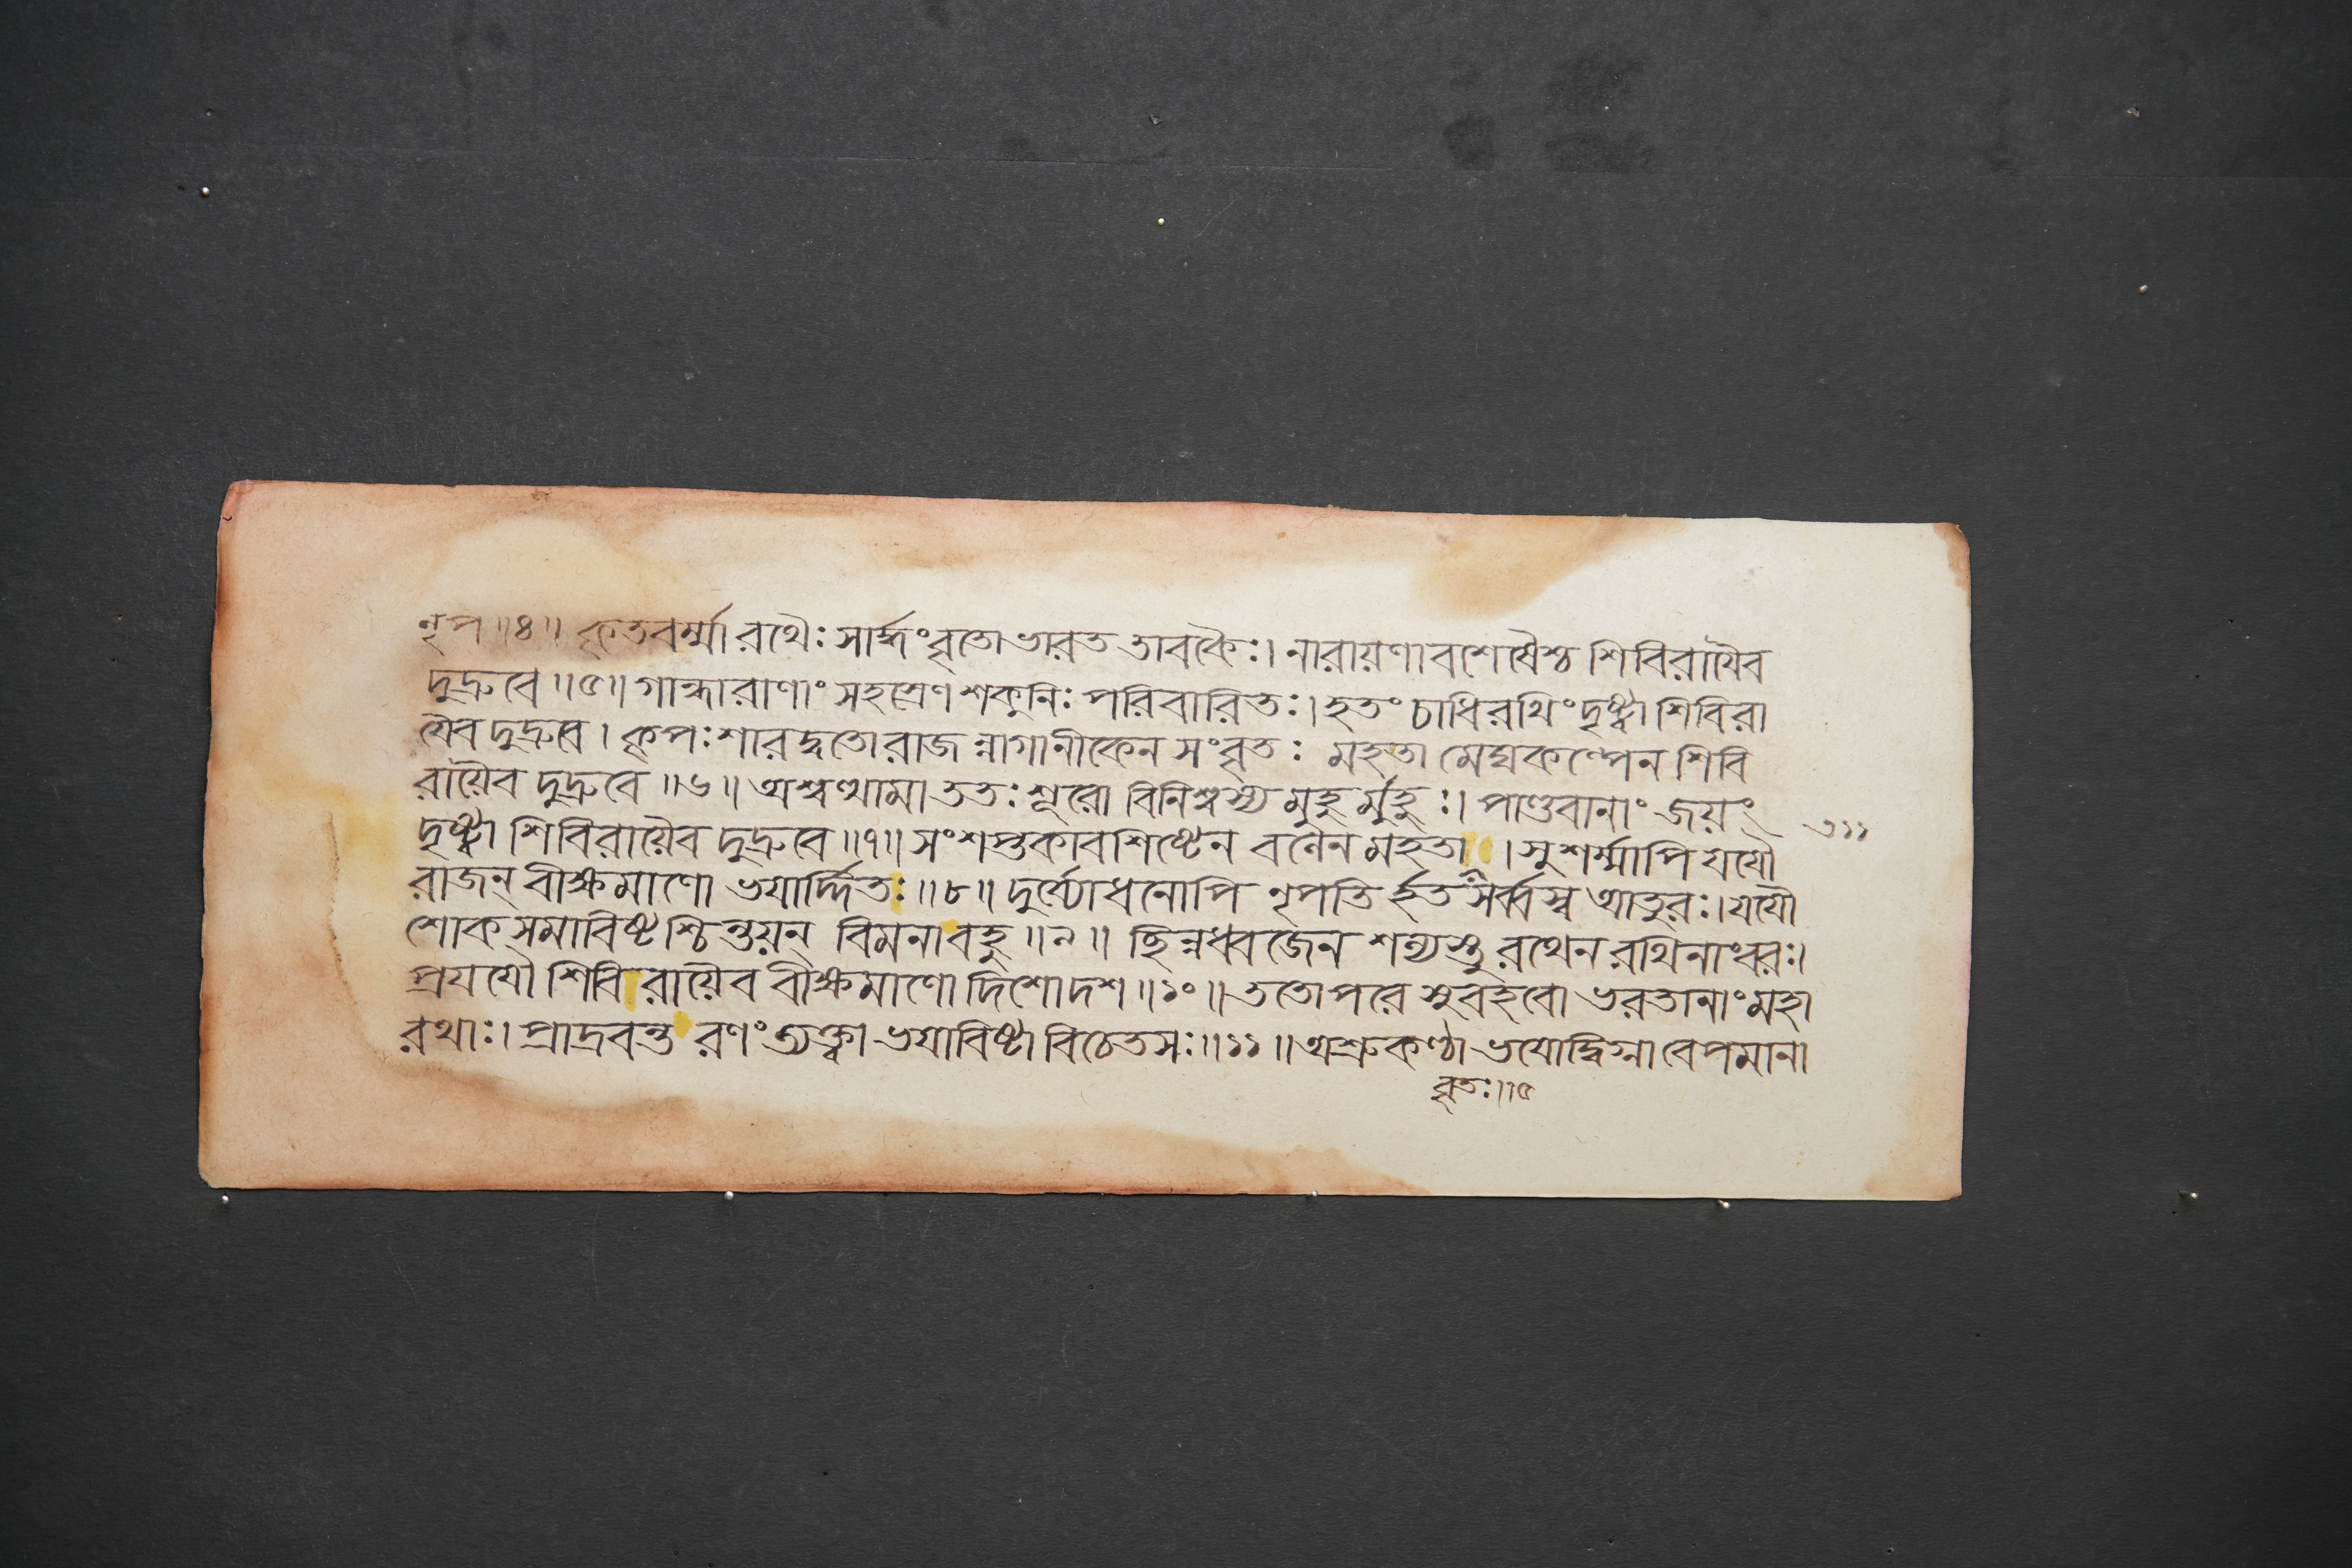 নৃপ॥৪॥ কৃতবর্ম্মা রথৈঃ সার্দ্ধংবৃতো ভারত তাবকৈঃ। নারায়ণাবশেষৈশ্চ শিবিরায়ৈব
দুদ্রুবে॥৫॥ গান্ধারাণাং সহস্রেণ শকুনিঃ পরিবারিতঃ। হতং চাধিরথিং দৃষ্ট্বা শিবিরা
য়ৈব দুদ্রুবে। কৃপঃ শারদ্বতো রাজ ন্নাগানীকেন সংবৃতঃ মহতা মেঘকল্পেন শিবি
রায়ৈব দুদ্রুবে॥৬॥ অশ্বত্থামা ততঃ শূরো বিনিশ্বস্য মুহু র্মুহুঃ। পাণ্ডবানাং জয়ং
দৃষ্ট্বা শিবিরায়ৈব দুদ্রুবে॥৭॥ সংশপ্তকাবশিষ্টেন বলেন মহতা । সুশর্ম্মাপি যযৌ
৩১১
রাজন্ বীক্ষমাণো ভয়ার্দ্দিতঃ॥৮॥ দুর্য্যোধনোপি নৃপতি র্হত সর্ব্বস্ব আতুরঃ। যযৌ
শোক সমাবিষ্ট শ্চিন্তয়ন্ বিমনা বহু॥৯॥ ছিন্নধ্বজেন শল্যস্তু রথেন রথিনাংবরঃ।
প্রযযৌ শিবিরায়ৈব বীক্ষমাণো দিশোদশ॥১০॥ ততোপরে সুবহবো ভরতানাং মহা
রথাঃ। প্রাদ্রবন্ত রণং ত্যক্ত্বা ভয়াবিষ্টা বিচেতসঃ॥১১॥ অশ্রুকণ্ঠা ভয়োদ্বিগ্না বেপমানা
বৃতঃ।৭৫